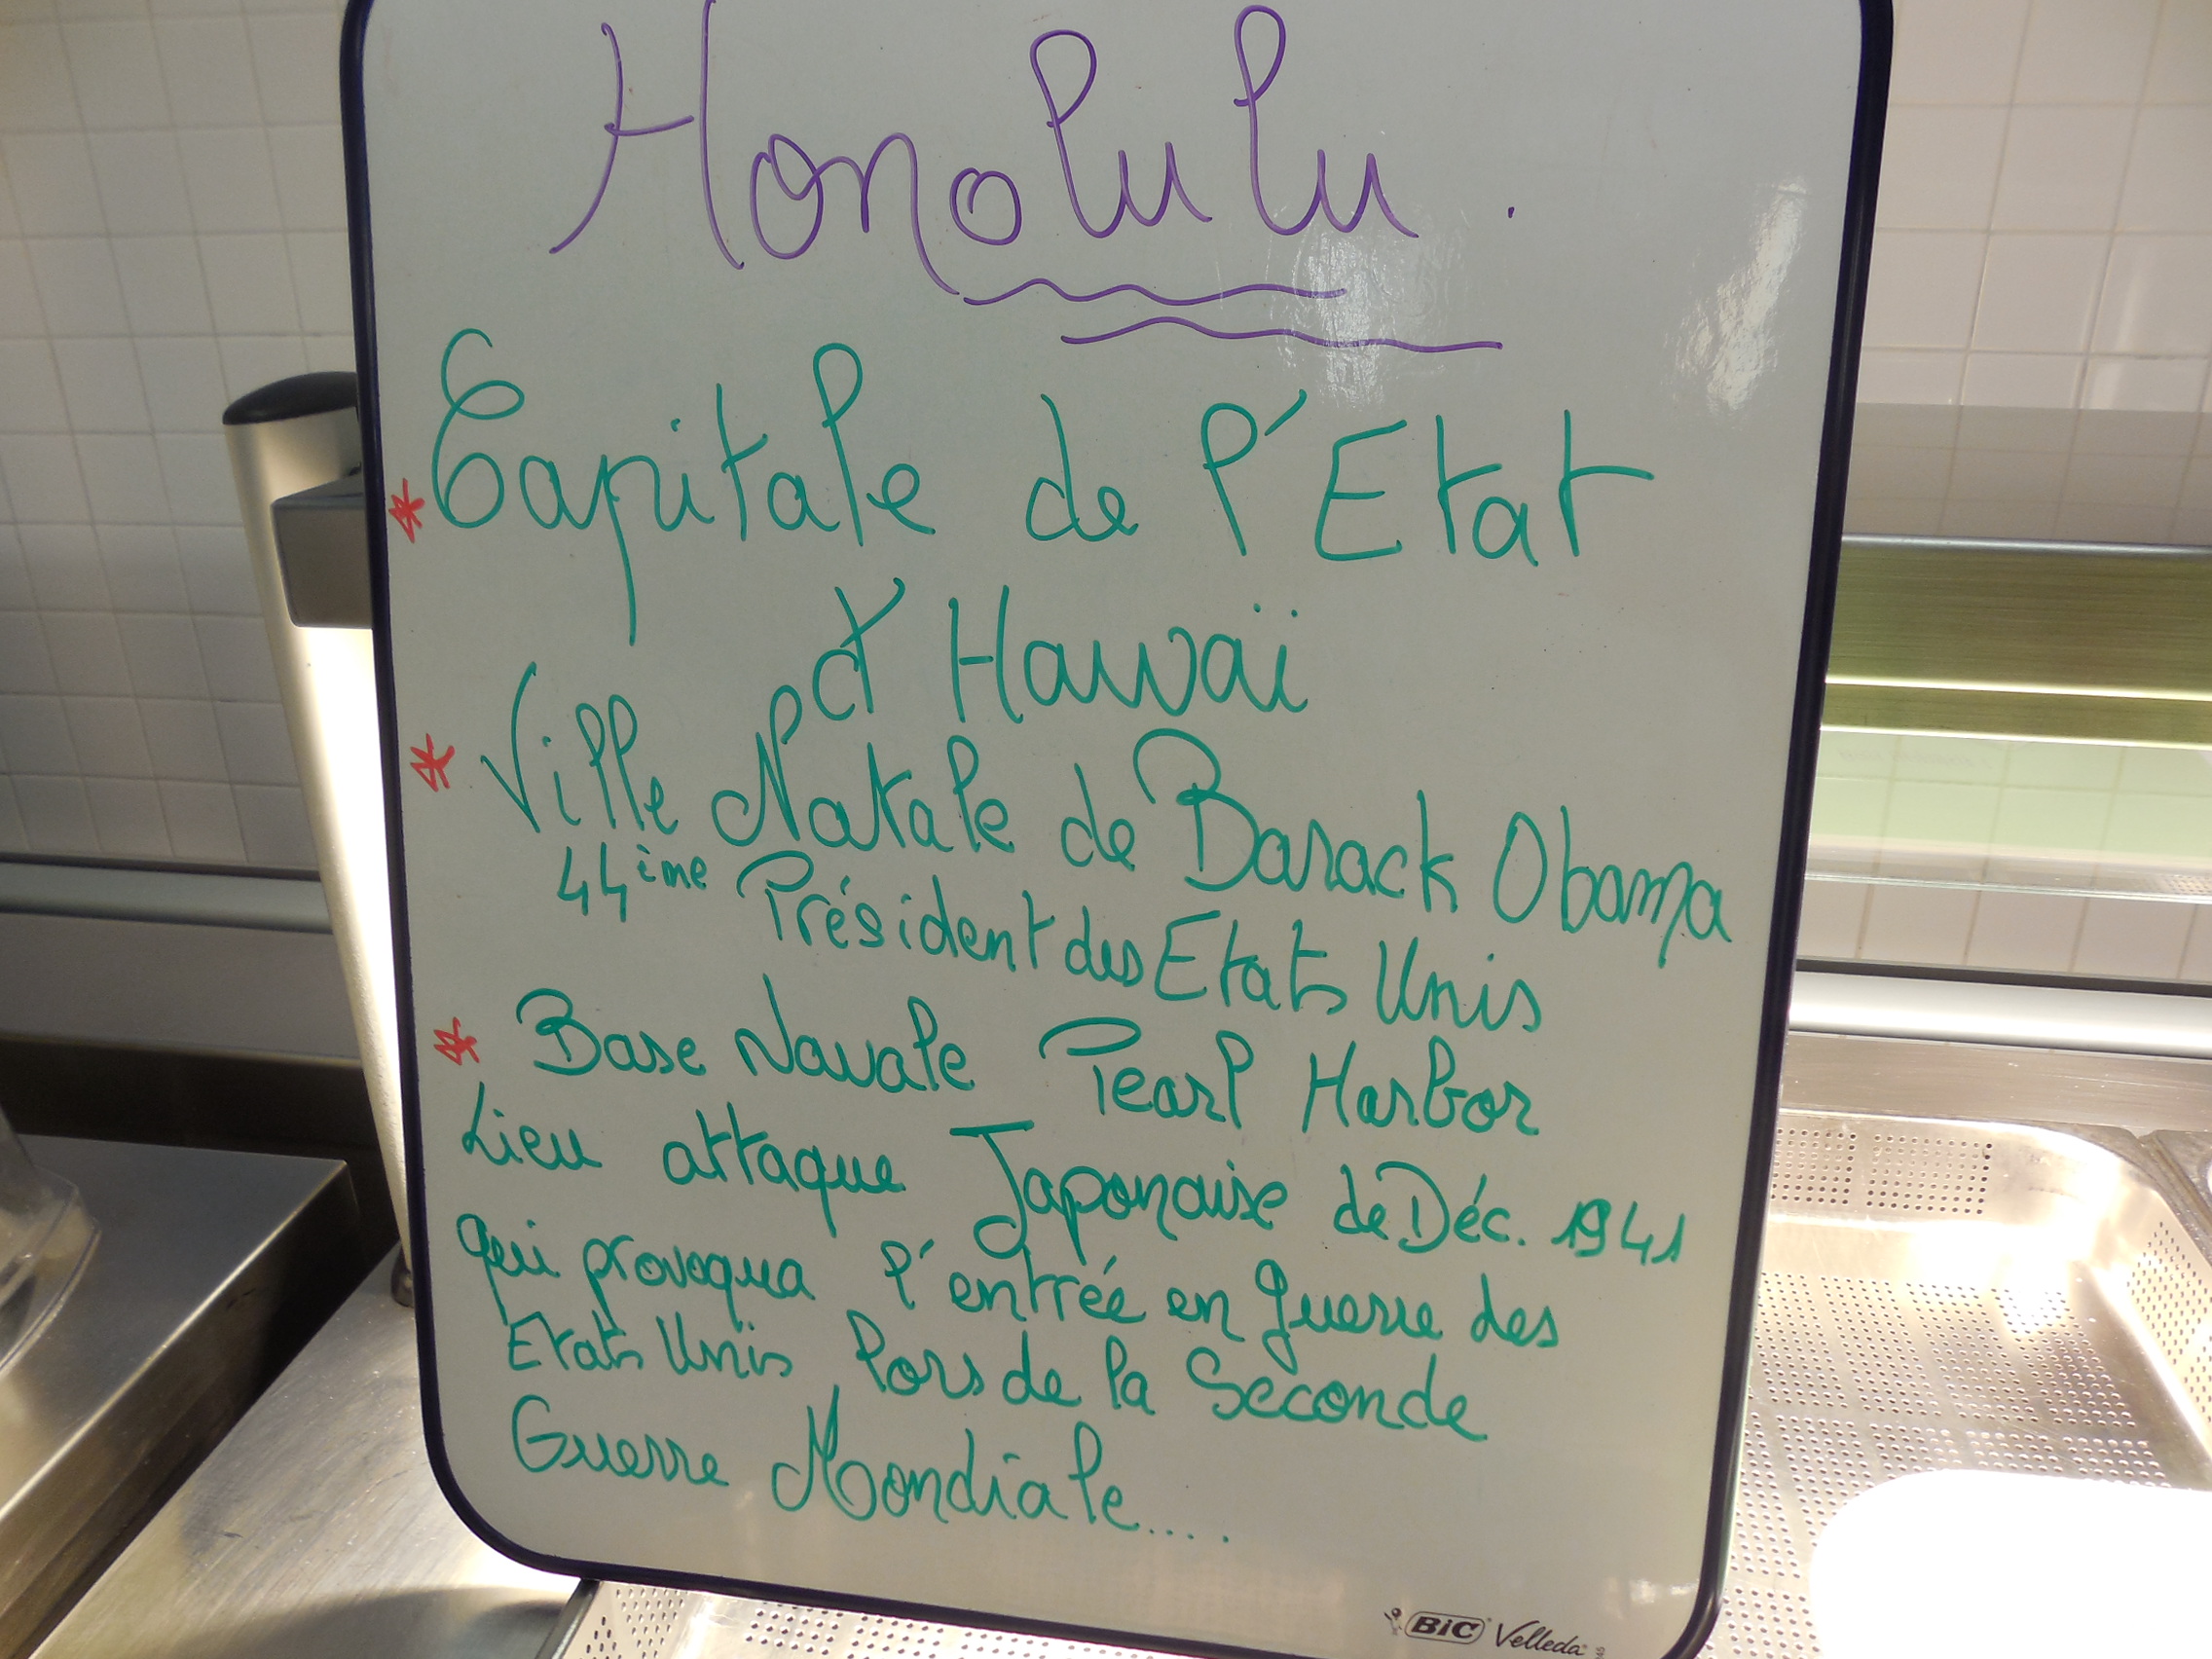 Honolulu.
* Capitale de l'Etat
d'Hawaï
* Ville Natale de Barack Obama
44ème Président des Etats Unis
* Base Navale Pearl Harbor
Lieu attaque Japonaise de Déc. 1941
qui provoqua l'entrée en guerre des
Etats Unis lors de la Seconde
Guerre Mondiale....
BIC Velleda